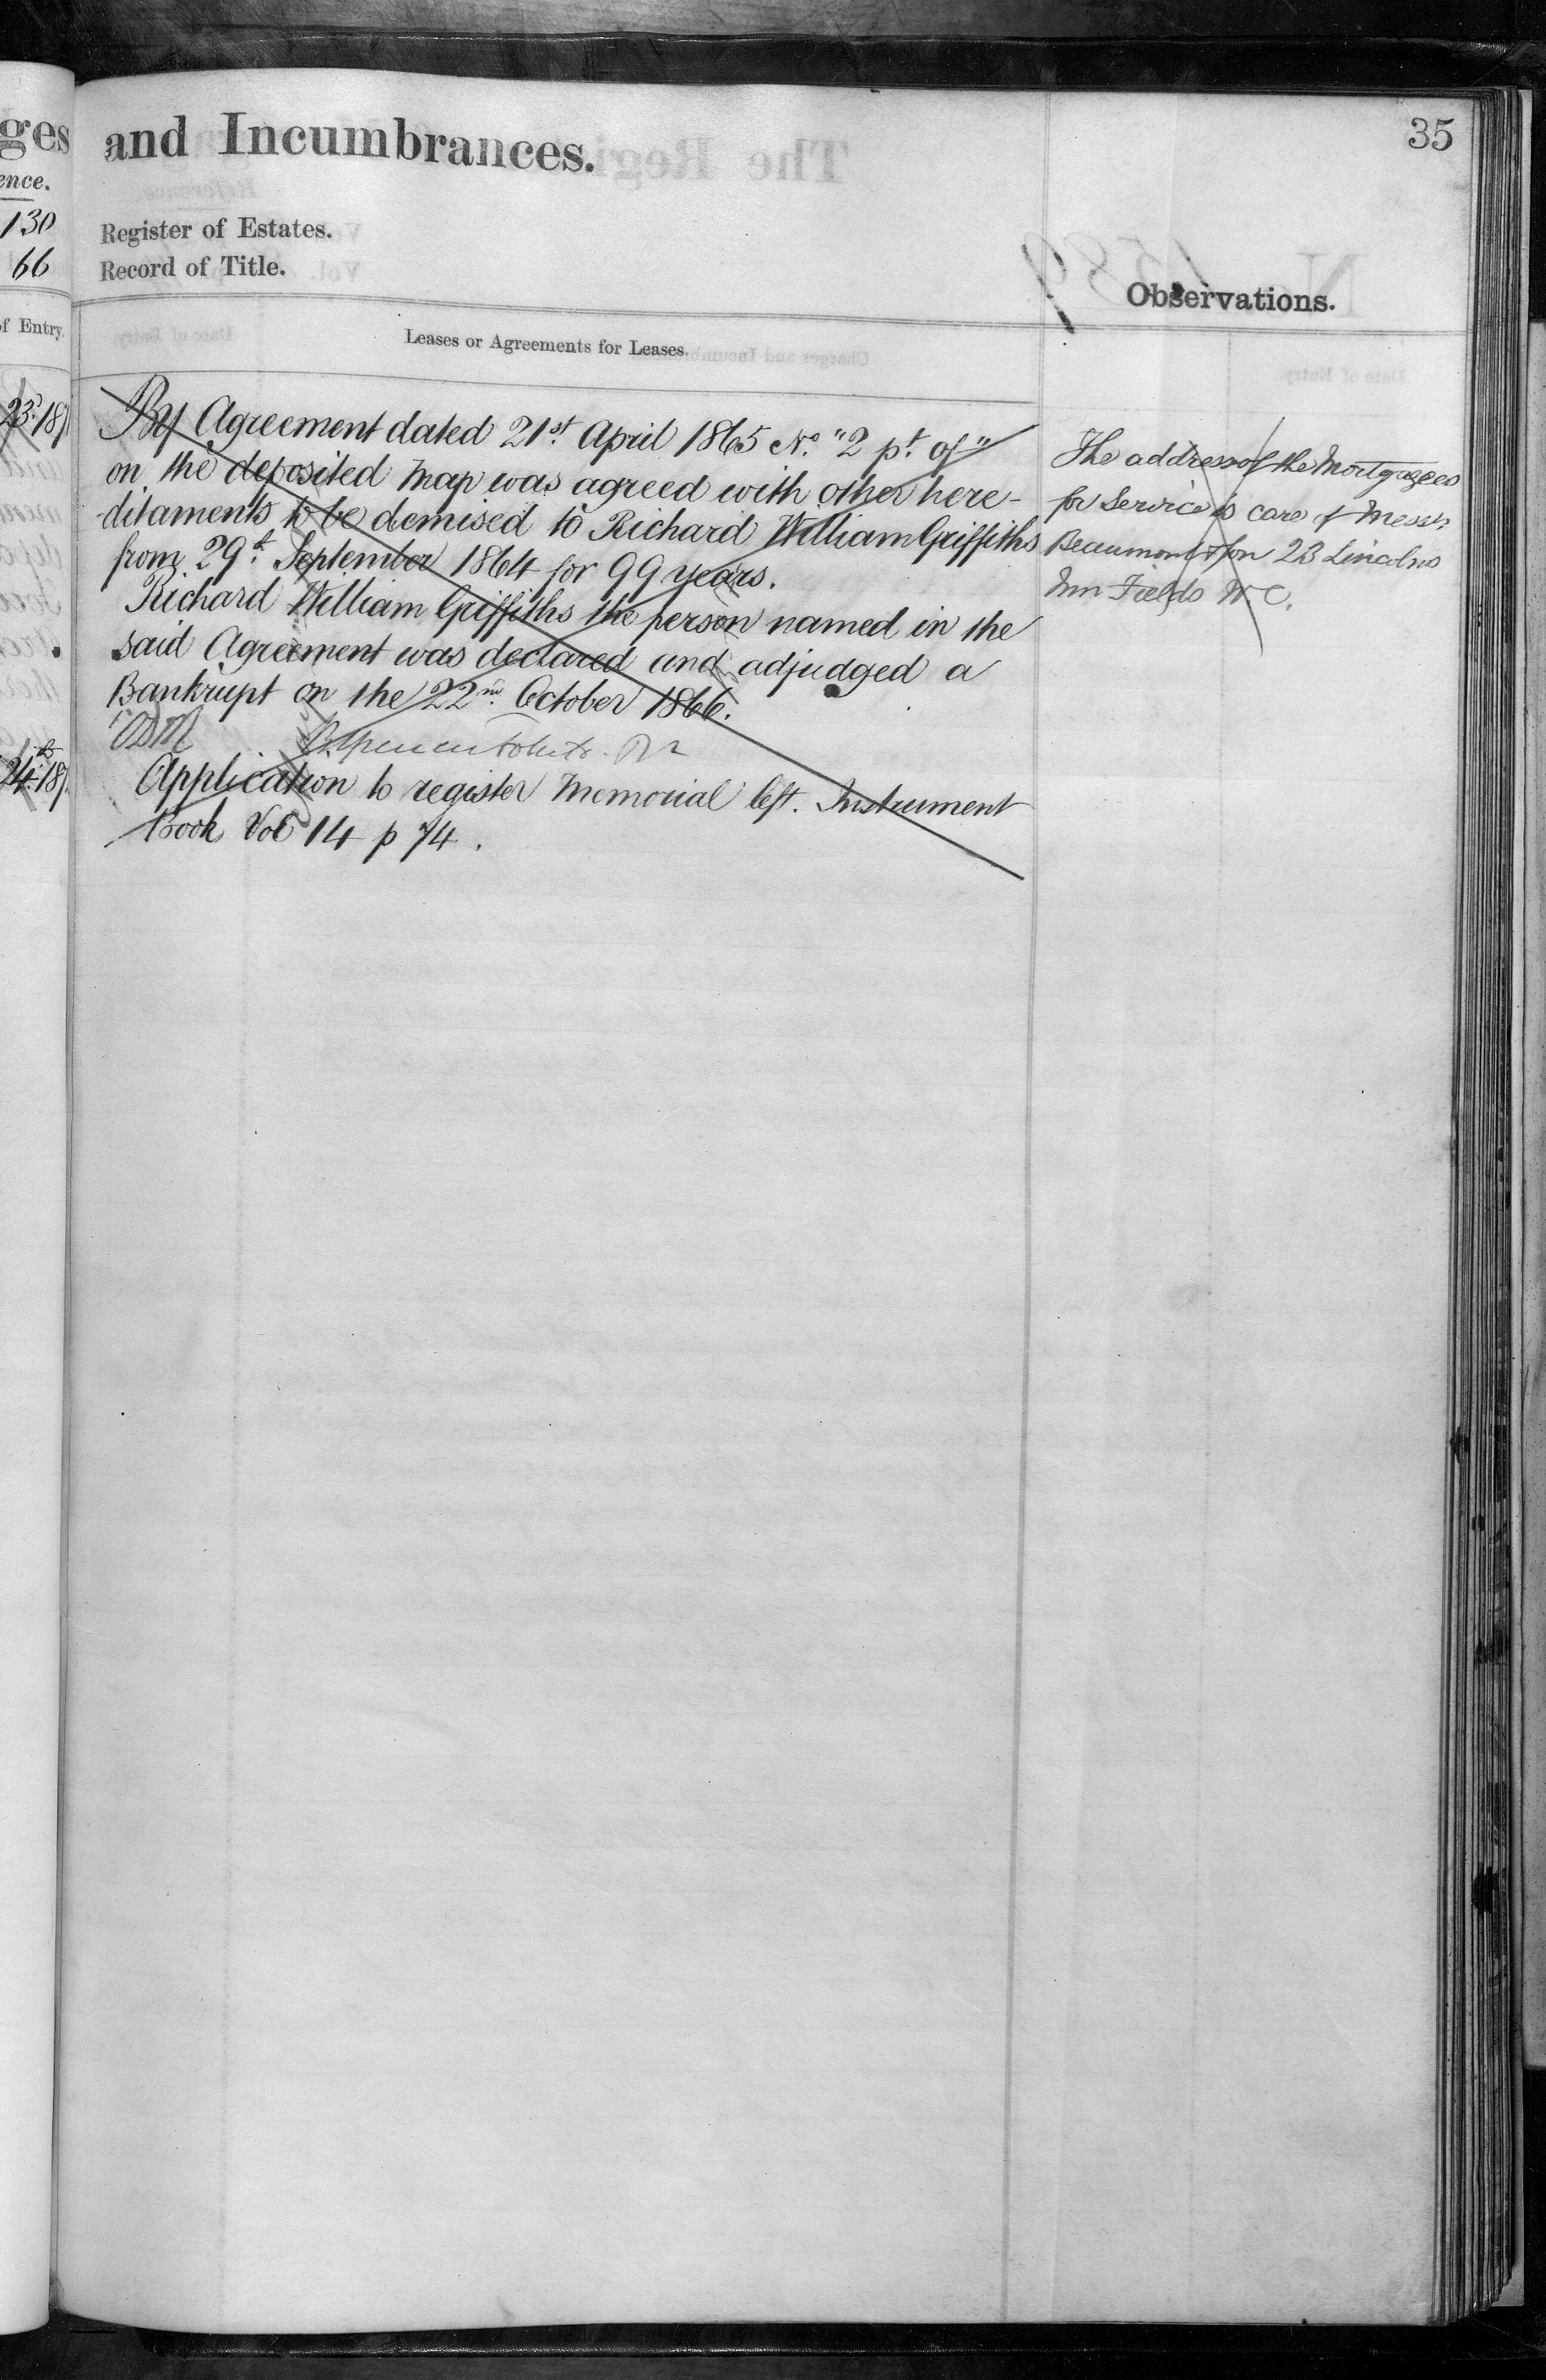 35
ges
and Incumbrances.
ence.
130
Register of Estates.
66
Record of Title.
Observations.
of Entry.
Leases or Agreements for Leases.
23.d 187
By Agreement dated 21st. April 1865 No. "2 pt. of"
on the deposited map was agreed with other here-
ditaments to be demised to Richard William Griffiths
from 29th. September 1864 for 99 years.
Richard William Griffiths the person named in the
said Agreement was declared and adjudged a
Bankrupt on the 22nd. October 1866.
24th. 187
Application to register Memorial left. Instrument
Book Vol 14 p 74.
The address of the Mortgagees
for Service is care of Messrs
Beaumont & Son 23 Lincolns
Inn Fields W.C.